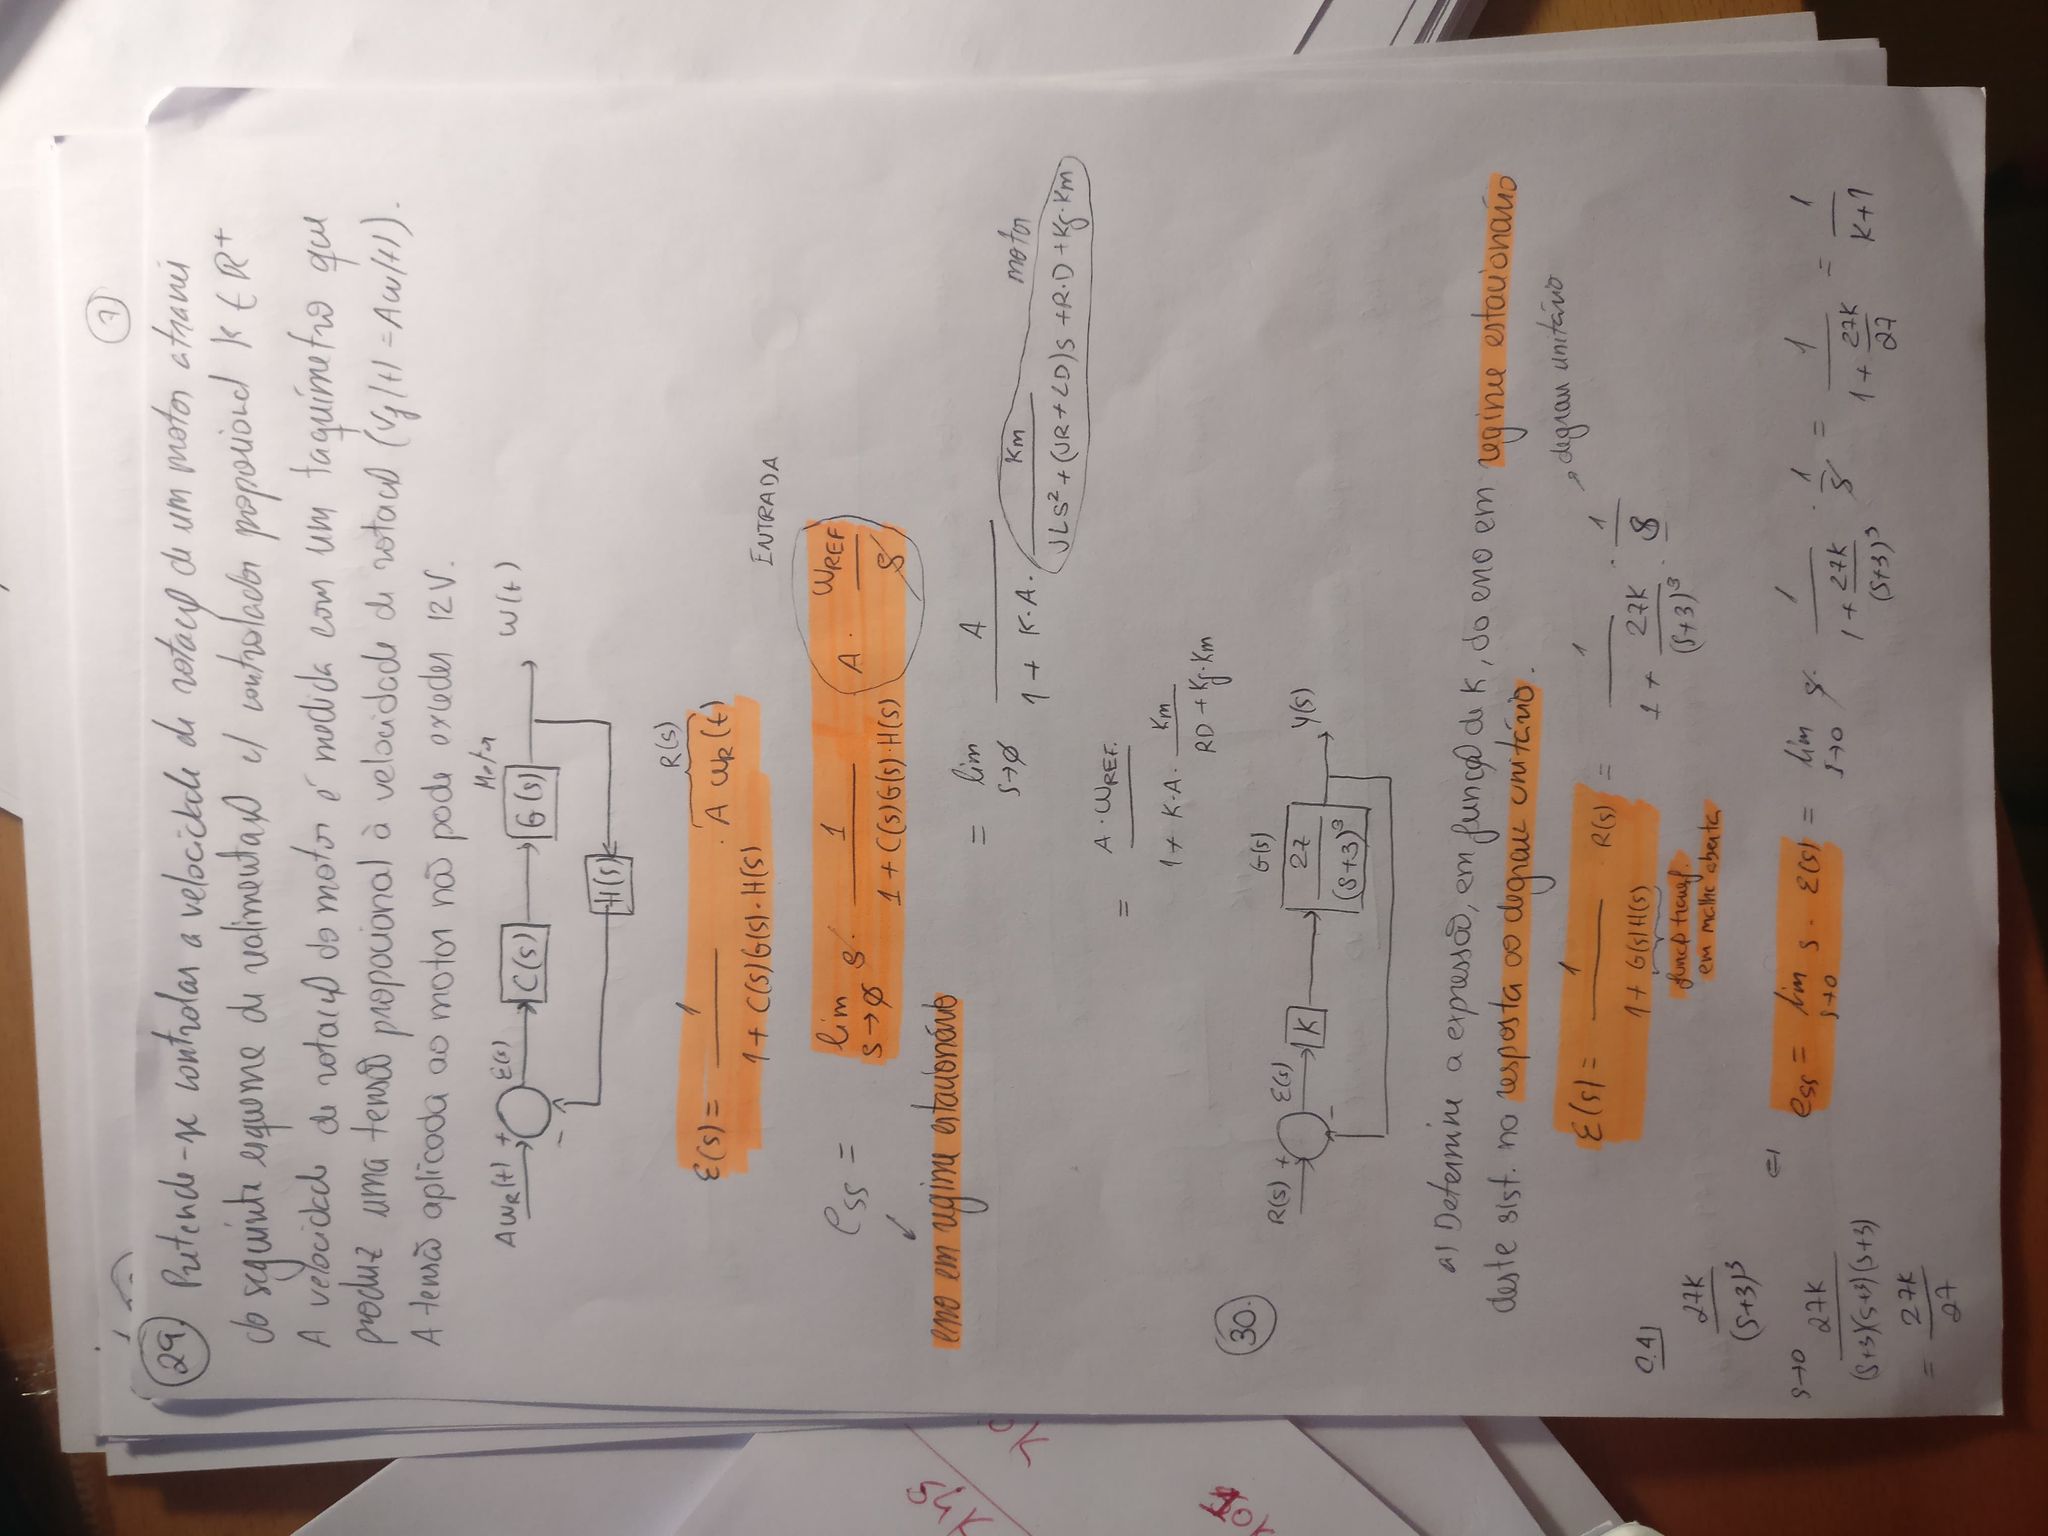 7
29. Pretende-se controlar a velocidade de rotação de um motor através
do seguinte esquema de realimentação c/ controlador proporcional K ∈ R+
A velocidade de rotação do motor é medida com um taquímetro que
produz uma tensão propocional à velocidade de rotação (Vg(t) = Aw(t)).
A tensão aplicada ao motor não pode exceder 12V.
Motor
AWR(t) + E(s) C(s) G(s) W(t)
-
H(s)
R(s)
E(s) = 1 / (1 + C(s)G(s)·H(s)) · A WR(t)
ENTRADA
ess = lim s→0 s · 1 / (1 + C(s)G(s)·H(s)) A · WREF / s
erro em regime estacionário
= lim s→0 A / (1 + K·A· Km / (JLS² + (JR + LD)s + R·D + Kg·Km)) motor
= A · WREF. / (1 + K·A· Km / (RD + Kg·Km))
30.
G(s)
R(s) + E(s) K 27 / (s+3)³ Y(s)
-
a) Determine a expressão, em função de K, do erro em regime estacionário
deste sist. na resposta ao degrau unitário.
degrau unitário
E(s) = 1 / (1 + G(s)H(s)) R(s) = 1 / (1 + 27K / (s+3)³) · 1 / s
função transf.
em malha aberta
C.A)
27K / (s+3)³
s→0
27K / (s+3)(s+3)(s+3)
= 27K / 27
ess = lim s→0 s · E(s) = lim s→0 s · 1 / (1 + 27K / (s+3)³) · 1 / s = 1 / (1 + 27K / 27) = 1 / (K+1)